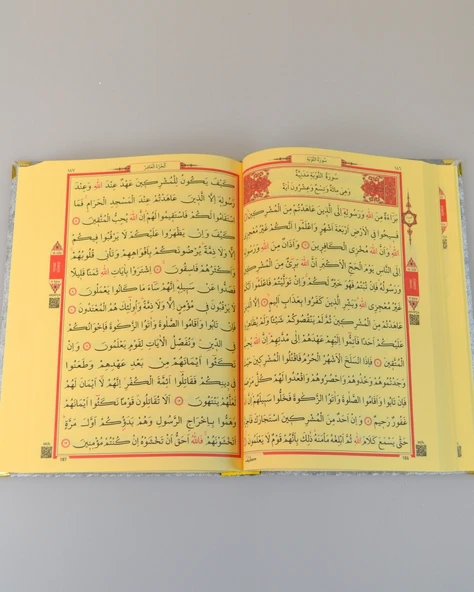 سُورَةُ التَّوْبَةِ
سُورَةُ التَّوْبَةِ مَدَنِيَّةٌ
وَهِيَ مِائَةٌ وَتِسْعٌ وَعِشْرُونَ اٰيَةً
بَرَٓاءَةٌ مِنَ اللّٰهِ وَرَسُولِهٖٓ اِلَى الَّذٖينَ عَاهَدْتُمْ مِنَ الْمُشْرِكٖينَ
فَسٖيحُوا فِي الْاَرْضِ اَرْبَعَةَ اَشْهُرٍ وَاعْلَمُٓوا اَنَّكُمْ غَيْرُ مُعْجِزِي
اللّٰهِ وَاَنَّ اللّٰهَ مُخْزِي الْكَافِرٖينَ وَاَذَانٌ مِنَ اللّٰهِ وَرَسُولِهٖٓ
اِلَى النَّاسِ يَوْمَ الْحَجِّ الْاَكْبَرِ اَنَّ اللّٰهَ بَرٖٓيءٌ مِنَ الْمُشْرِكٖينَ
وَرَسُولُهُ فَاِنْ تُبْتُمْ فَهُوَ خَيْرٌ لَكُمْ وَاِنْ تَوَلَّيْتُمْ فَاعْلَمُٓوا اَنَّكُمْ
غَيْرُ مُعْجِزِي اللّٰهِ وَبَشِّرِ الَّذٖينَ كَفَرُوا بِعَذَابٍ اَلٖيمٍ اِلَّا الَّذٖينَ
عَاهَدْتُمْ مِنَ الْمُشْرِكٖينَ ثُمَّ لَمْ يَنْقُصُوكُمْ شَيْـًٔا وَلَمْ يُظَاهِرُوا
عَلَيْكُمْ اَحَدًا فَاَتِمُّٓوا اِلَيْهِمْ عَهْدَهُمْ اِلٰى مُدَّتِهِمْ اِنَّ اللّٰهَ يُحِبُّ
الْمُتَّقٖينَ فَاِذَا انْسَلَخَ الْاَشْهُرُ الْحُرُمُ فَاقْتُلُوا الْمُشْرِكٖينَ حَيْثُ
وَجَدْتُمُوهُمْ وَخُذُوهُمْ وَاحْصُرُوهُمْ وَاقْعُدُوا لَهُمْ كُلَّ مَرْصَدٍ
فَاِنْ تَابُوا وَاَقَامُوا الصَّلٰوةَ وَاٰتَوُا الزَّكٰوةَ فَخَلُّوا سَبٖيلَهُمْ اِنَّ اللّٰهَ
غَفُورٌ رَحٖيمٌ وَاِنْ اَحَدٌ مِنَ الْمُشْرِكٖينَ اسْتَجَارَكَ فَاَجِرْهُ
حَتّٰى يَسْمَعَ كَلَامَ اللّٰهِ ثُمَّ اَبْلِغْهُ مَأْمَنَهُ ذٰلِكَ بِاَنَّهُمْ قَوْمٌ لَا يَعْلَمُونَ
كَيْفَ يَكُونُ لِلْمُشْرِكٖينَ عَهْدٌ عِنْدَ اللّٰهِ وَعِنْدَ
رَسُولِهٖٓ اِلَّا الَّذٖينَ عَاهَدْتُمْ عِنْدَ الْمَسْجِدِ الْحَرَامِ فَمَا
اسْتَقَامُوا لَكُمْ فَاسْتَقٖيمُوا لَهُمْ اِنَّ اللّٰهَ يُحِبُّ الْمُتَّقٖينَ
كَيْفَ وَاِنْ يَظْهَرُوا عَلَيْكُمْ لَا يَرْقُبُوا فٖيكُمْ
اِلًّا وَلَا ذِمَّةً يُرْضُونَكُمْ بِاَفْوَاهِهِمْ وَتَأْبٰى قُلُوبُهُمْ
وَاَكْثَرُهُمْ فَاسِقُونَ اِشْتَرَوْا بِاٰيَاتِ اللّٰهِ ثَمَنًا قَلٖيلًا
فَصَدُّوا عَنْ سَبٖيلِهٖ اِنَّهُمْ سَٓاءَ مَا كَانُوا يَعْمَلُونَ
لَا يَرْقُبُونَ فٖي مُؤْمِنٍ اِلًّا وَلَا ذِمَّةً وَاُولٰٓئِكَ هُمُ الْمُعْتَدُونَ
فَاِنْ تَابُوا وَاَقَامُوا الصَّلٰوةَ وَاٰتَوُا الزَّكٰوةَ فَاِخْوَانُكُمْ
فِي الدّٖينِ وَنُفَصِّلُ الْاٰيَاتِ لِقَوْمٍ يَعْلَمُونَ وَاِنْ
نَكَثُٓوا اَيْمَانَهُمْ مِنْ بَعْدِ عَهْدِهِمْ وَطَعَنُوا
فٖي دٖينِكُمْ فَقَاتِلُٓوا اَئِمَّةَ الْكُفْرِ اِنَّهُمْ لَٓا اَيْمَانَ لَهُمْ
لَعَلَّهُمْ يَنْتَهُونَ اَلَا تُقَاتِلُونَ قَوْمًا نَكَثُٓوا اَيْمَانَهُمْ
وَهَمُّوا بِاِخْرَاجِ الرَّسُولِ وَهُمْ بَدَؤُ۫كُمْ اَوَّلَ مَرَّةٍ
اَتَخْشَوْنَهُمْ فَاللّٰهُ اَحَقُّ اَنْ تَخْشَوْهُ اِنْ كُنْتُمْ مُؤْمِنٖينَ